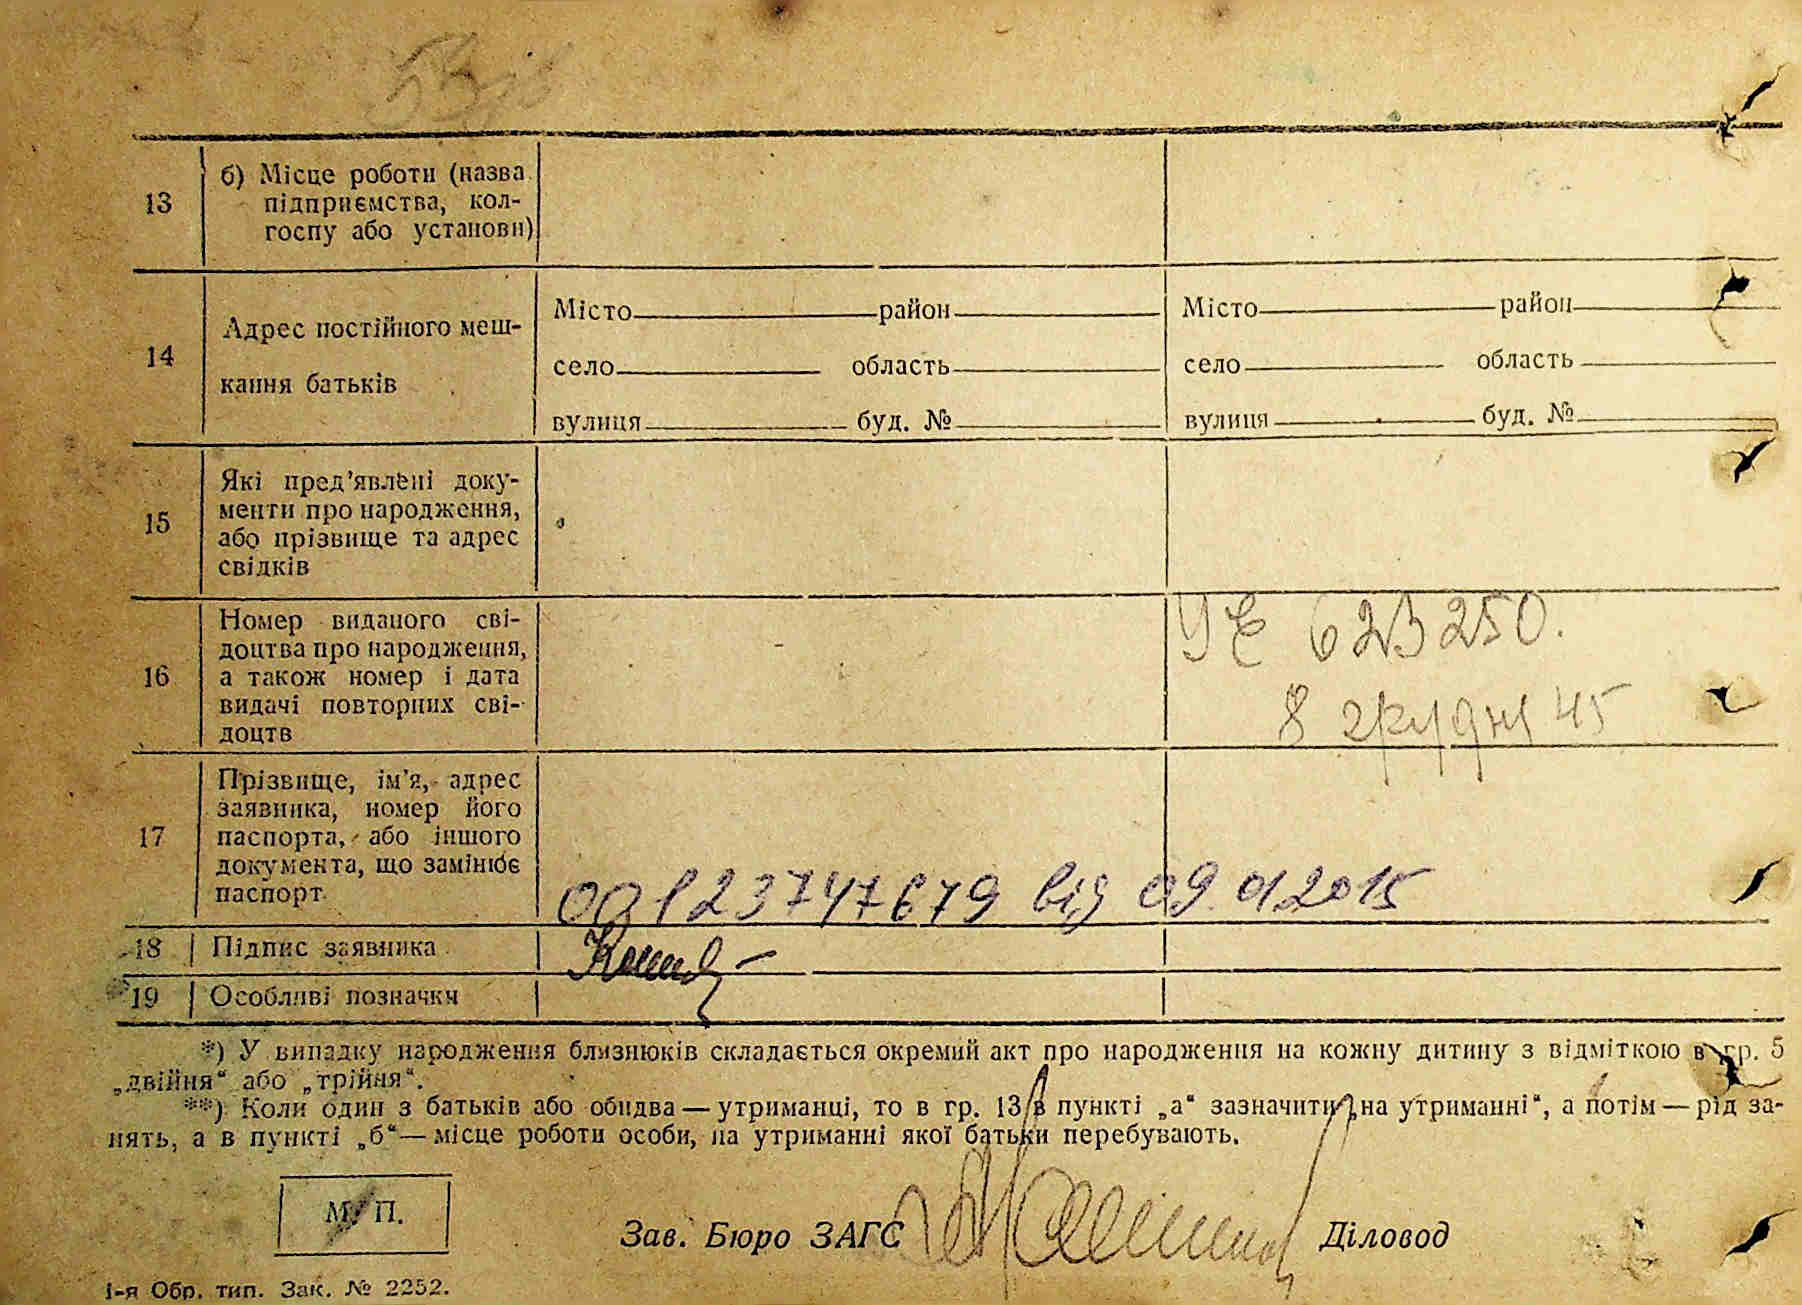 13
б) Місце роботи (назва
підприємства, кол-
госпу або установи)
14
Адрес постійного меш-
кання батьків
Місто район
село область
вулиця буд. №
Місто район
село область
вулиця буд. №
15
Які пред’явлені доку-
менти про народження,
або прізвище та адрес
свідків
16
Номер виданого сві-
доцтва про народження,
а також номер і дата
видачі повторних сві-
доцтв
УЄ 623250.
8 грудня 45
17
Прізвище, ім’я, адрес
заявника, номер його
паспорта, або іншого
документа, що замінює
паспорт
00123747679 від 09.01.2015
18 Підпис заявника
19 Особливі позначки
*) У випадку народження близнюків складається окремий акт про народження на кожну дитину з відміткою в гр. 5
„двійня“ або „трійня“.
**) Коли один з батьків або обидва — утриманці, то в гр. 13 в пункті „а“ зазначити „на утриманні“, а потім — рід за-
нять, а в пункті „б“ — місце роботи особи, на утриманні якої батьки перебувають.
М. П.
Зав. Бюро ЗАГС Діловод
1-я Обр. тип. Зак. № 2252.